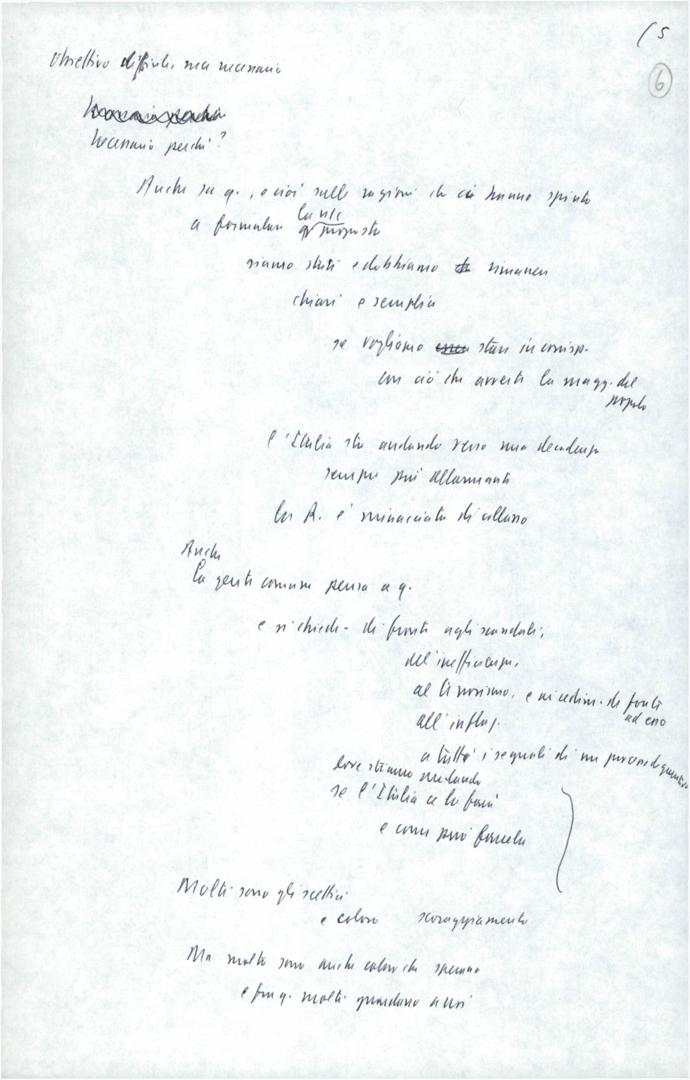 15
6
Obiettivo difficile, ma necessario
Necessario perché?
Anche su q., e cioè sulle ragioni che ci hanno spinto
a formulare la ns/
proposta
siamo stati e dobbiamo rimanere
chiari e semplici
se vogliamo stare in corrisp.
con ciò che avverte la magg. del
popolo
l'Italia sta andando verso una decadenza
sempre più allarmante
la R. è minacciata di collasso
Anche
la gente comune pensa a q.
e si chiede - di fronte agli scandali,
all'inefficienza,
al terrorismo, e ai cedim. di fronte
ad esso
all'inflaz.
a tutti i segnali di un
dove stiamo andando
se l'Italia ce la farà
e come può farcela
Molti sono gli scettici
e coloro scoraggiamento
Ma molti sono anche coloro che sperano
e fra q. molti guardano a noi